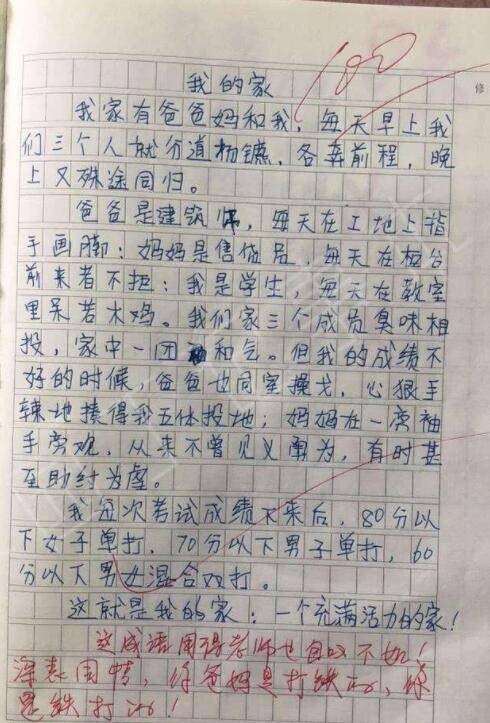 100
我的家
我家有爸爸妈和我,每天早上我
们三个人就分道杨镳,各奔前程,晚
上又殊途同归。
爸爸是建筑师,每天在工地上指
手画脚;妈妈是售货员,每天在柜台
前来者不拒;我是学生,每天在教室
里呆若木鸡。我们家三个成员臭味相
投,家中一团和气。但我的成绩不
好的时候,爸爸也同室操戈,心狠手
辣地揍得我五体投地;妈妈在一旁袖
手旁观,从来不曾见义勇为,有时甚
至助纣为虐。
我每次考试成绩下来后,80分以
下女子单打,70分以下男子单打,60
分以下男女混合双打。
这就是我的家:一个充满活力的家!
这成语用得老师也自叹不如!
深表同情,你爸妈是打铁的,你
是铁打的!